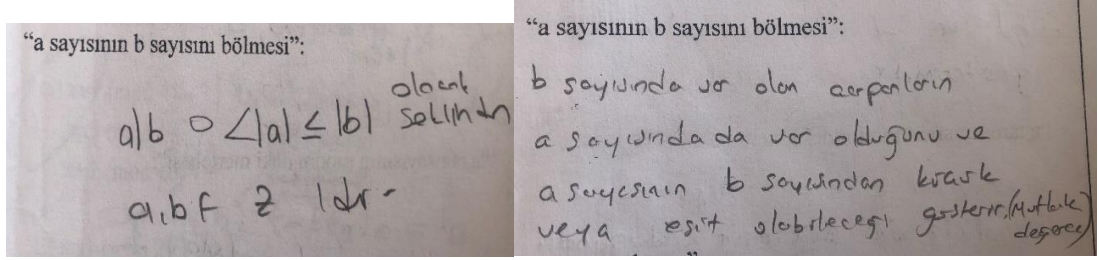 “a sayısının b sayısını bölmesi”:
a|b 0 < |a| ≤ |b| olacak şekilnde
a, b ∈ Z 'dir.
“a sayısının b sayısını bölmesi”:
b sayısında var olan çarpanların
a sayısında da var olduğunu ve
a sayısının b sayısından küçük
veya eşit olabileceği gösterir. (Mutlak
değerce)